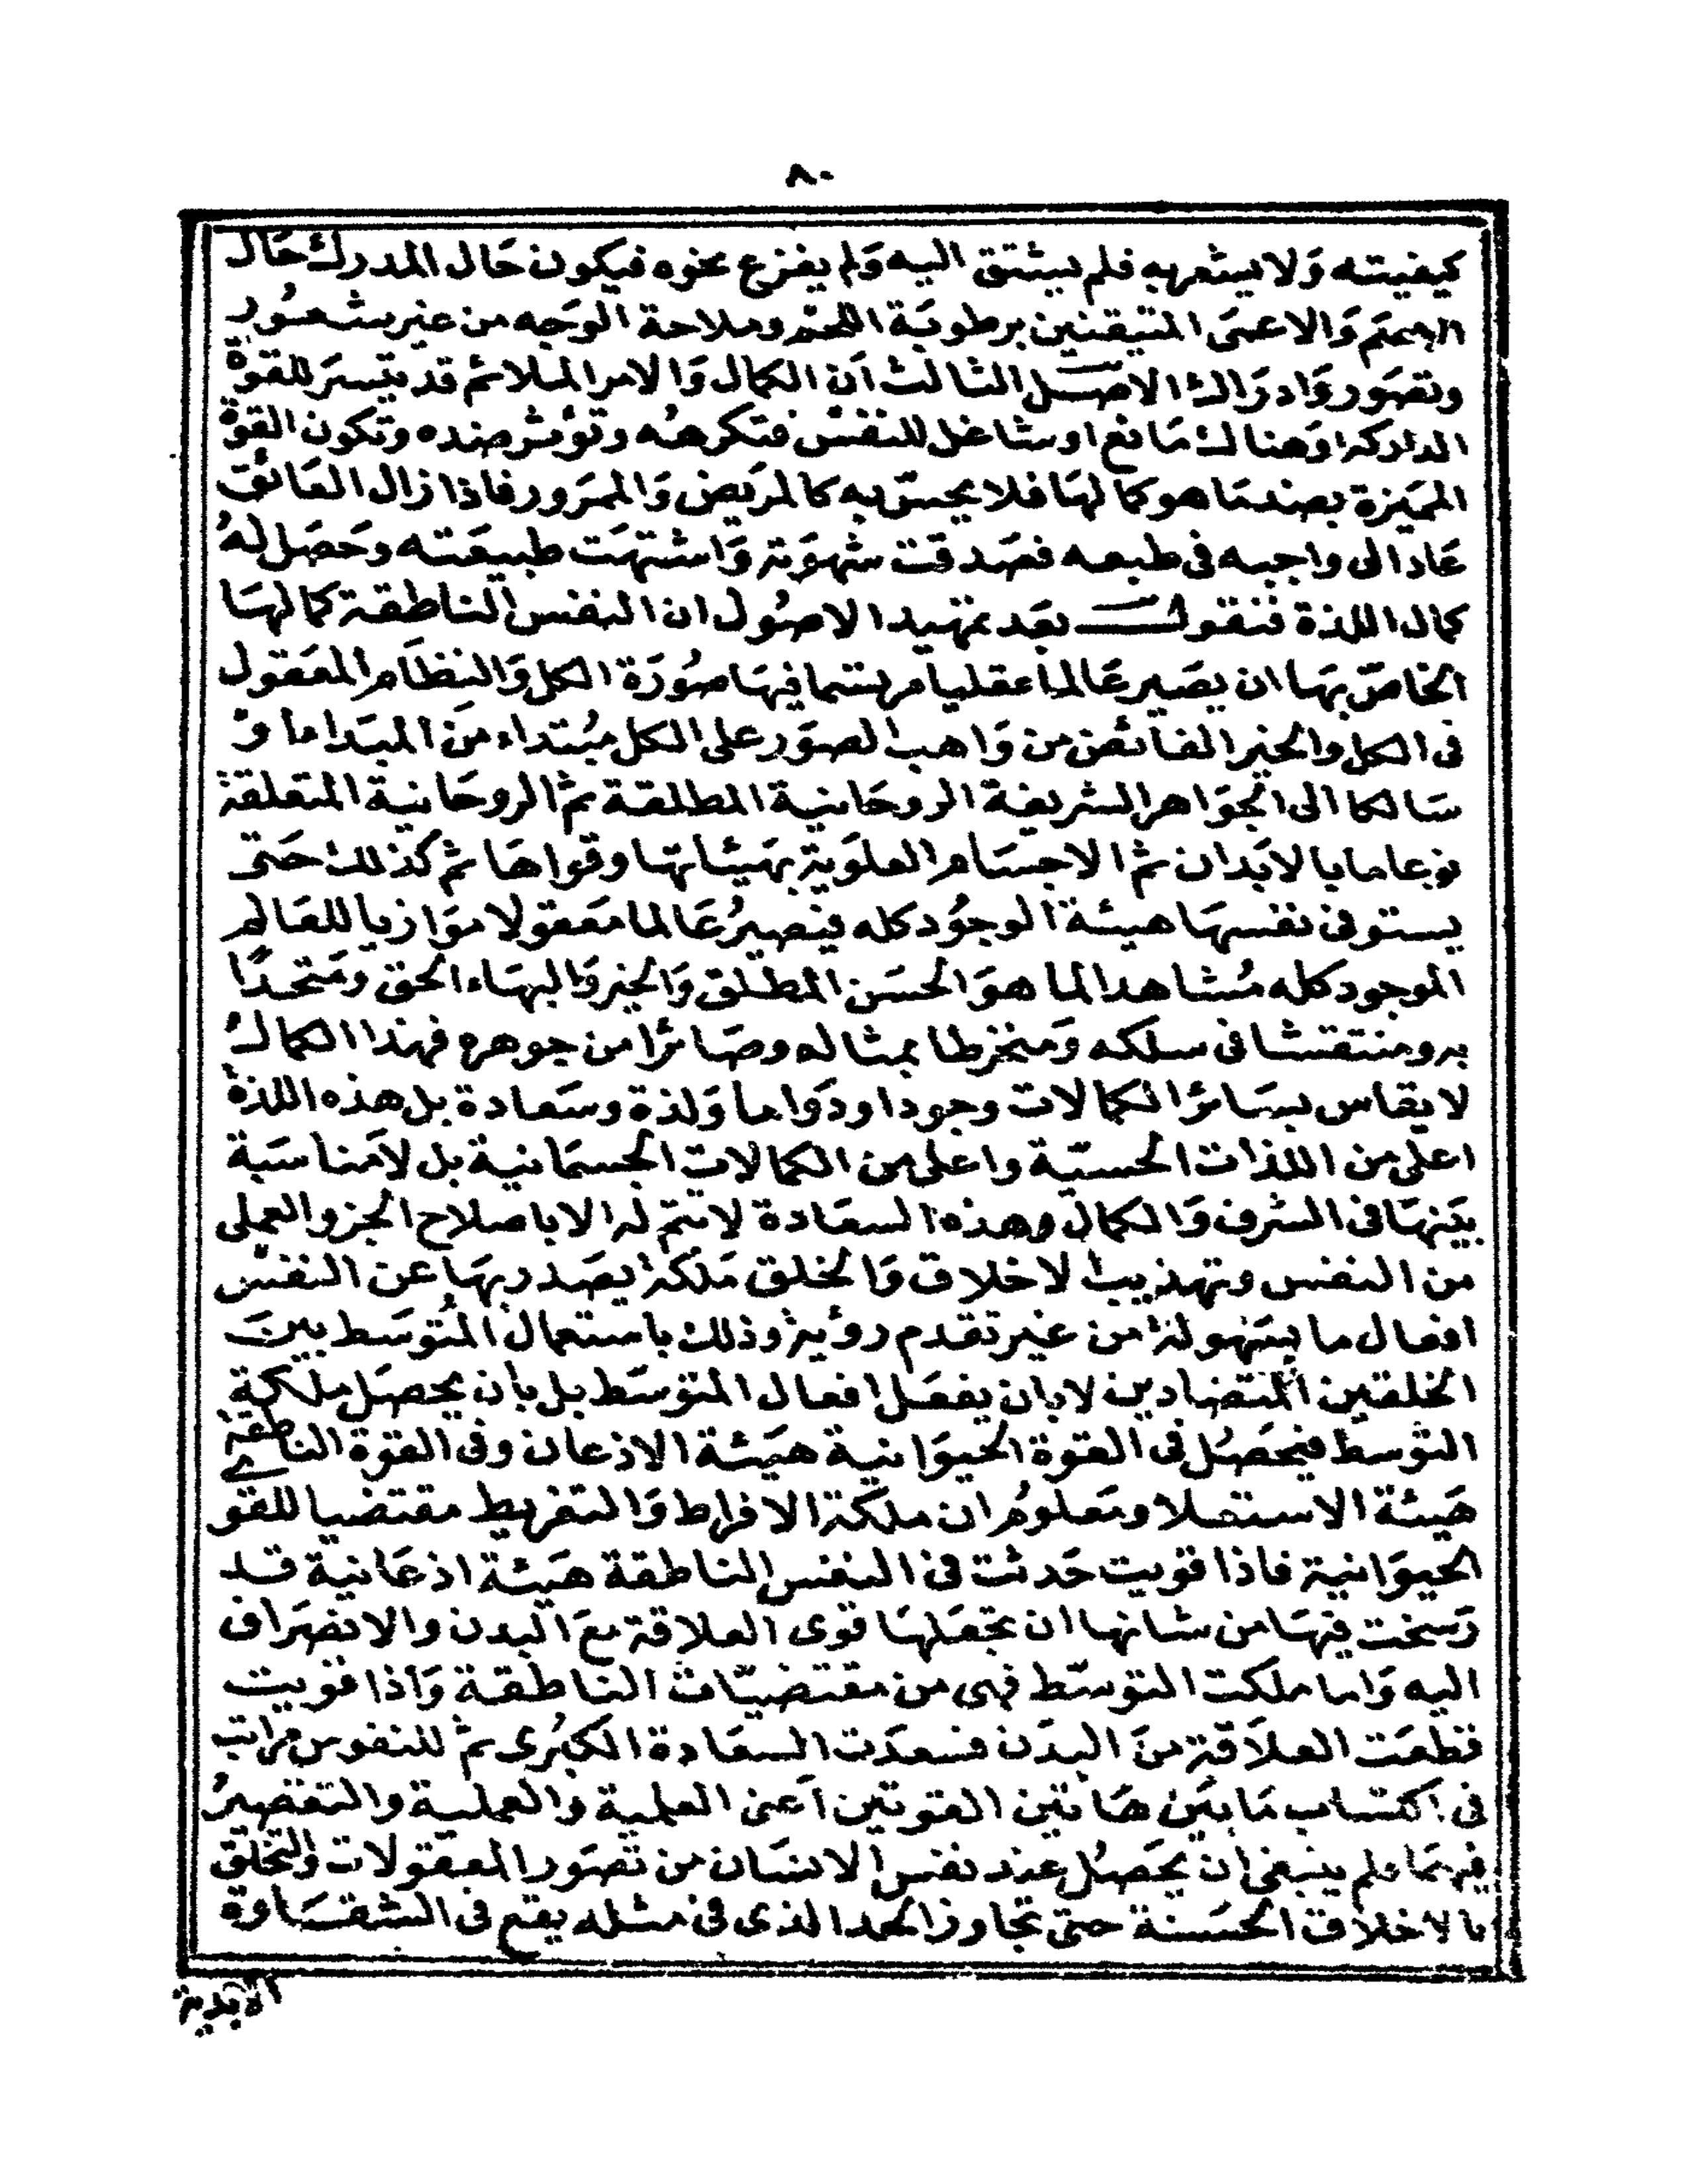 ٨٠
كيفيته وَلا يشعر به فلم يشتق اليه وَلم يفزع نحوه فيكون حَال المدرك حَال
الاصمّ وَالاعمىَ المتيقنين برطوبَة اللحم وملاحة الوَجه من غير شعُور
وتصَور وَادرَاك الاصل الثالث اَن الكمال وَالامر الملائم قد يتيسرَ للقوة
الدراكة وَهناك مَانع او شاغل للنفس فتكرههُ وتؤثر ضده وتكون القوة
المميَزة بضد مَا هو كمالهَا فلا يحسّ به كالمريَض وَالممرَور فاذا زال العَائق
عَاد الى واجبه فى طبعه فصَدقت شهوَته وَاشتهَت طبيعَته وحَصَل لهُ
كمال اللذة فنقول بعَد تمهيد الاصُول ان النفس الناطقة كمالهَا
الخاصّ بهَا ان يصَير عَالما عقليا مرتسما فيهَا صُورَة الكل وَالنظاَم المعَقول
فى الكل والخير الفائض من وَاهب الصوَر على الكل مُبتداء منَ المبَدا ما وْ
سَالكا الى الجوَاهر الشريفة الروحَانية المطلقة ثمّ الروحَانية المتعلقة
نوعا ما بالابَدان ثمّ الاجسَام العلوَية بهَيئاتها وقواهَا ثم كذلك حَتى
يستوفى نفسهَا هيئة الوجوُد كله فيصيرُ عَالما معَقولا موَازيا للعَالم
الموجود كله مُشاهدا لما هوَ الحسَن المطلق وَالخير وَالبهَاء الحق ومَتحدًا
به ومنتقشا فى سلكه وَمنخرطا بمثاله وصَائرا من جوهره فهذا الكمال
لا يقاس بسَائر الكمالات وجودا ودَواما وَلذة وسَعادة بل هذه اللذة
اعلى من اللذات الحسيّة واعلى من الكمالات الجسمَانية بل لاَ مناسَبة
بيَنهَا فى الشرف وَالكمال وهذه السعَادة لا تتم له الا باصلاح الجزو العملى
من النفس وتهذيب الاخلاق وَالخلق مَلكة يصَدر بهَا عن النفس
افعال ما بسَهولة من غير تقدم روُية وذلك باستعمال المتُوَسط بينَ
الخلقين المتضادين لا بان يفعَل افعال المتوَسّط بل بان يحصَل ملكة
التوَسط فيحصَُل فى القوة الحيوَانية هَيئة الاذعان وفى القوة الناطقة
هَيئة الاستعلا ومَعلوُم ان ملكَة الافراط وَالتفريط مقتضيا للقوى
الحيوَانية فاذا قويت حَدثت فى النفس الناطقة هَيئة اذعَانية قد
رَسخت فيهَا من شانها ان تجعَلهَا قوى العلاقة معَ البدن والانصَراف
اليه وَاما ملكت التوسّط فهى من مقتضيّات الناطقة وَاذا قويت
قطعَت العلاَقة منَ البدَن فسعدَت السعَادة الكبُرى ثمّ للنفوس مراتب
فى اكتساب مَا بيَن هَاتين القوتين اَعنى العلمية وَالعملية والتقصيرُ
فيهمَا فلم ينبغى ان يحَصُل عند نفس الانسَان من تصَور المعقولات والتخلق
بالاخلاق الحسَنة حتى تجَاوز الحد الذى فى مثله يقع فى الشقَاوة
الاَبدية